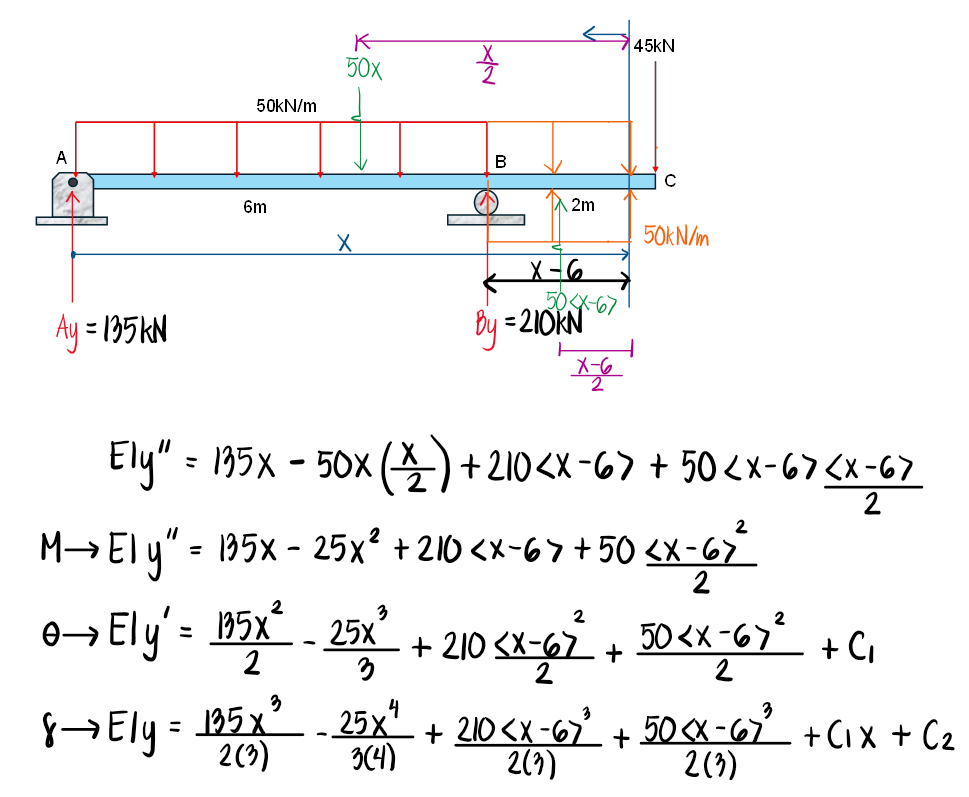 45kN
x/2
50x
50kN/m
A
B
C
6m
2m
50kN/m
x
x-6
50<x-6>
Ay = 135kN
By = 210kN
x-6/2
EIy'' = 135x - 50x(x/2) + 210<x-6> + 50<x-6><x-6>/2
M→EIy'' = 135x - 25x² + 210<x-6> + 50<x-6>²/2
θ→EIy' = 135x²/2 - 25x³/3 + 210<x-6>²/2 + 50<x-6>²/2 + C₁
δ→EIy = 135x³/2(3) - 25x⁴/3(4) + 210<x-6>³/2(3) + 50<x-6>³/2(3) + C₁x + C₂